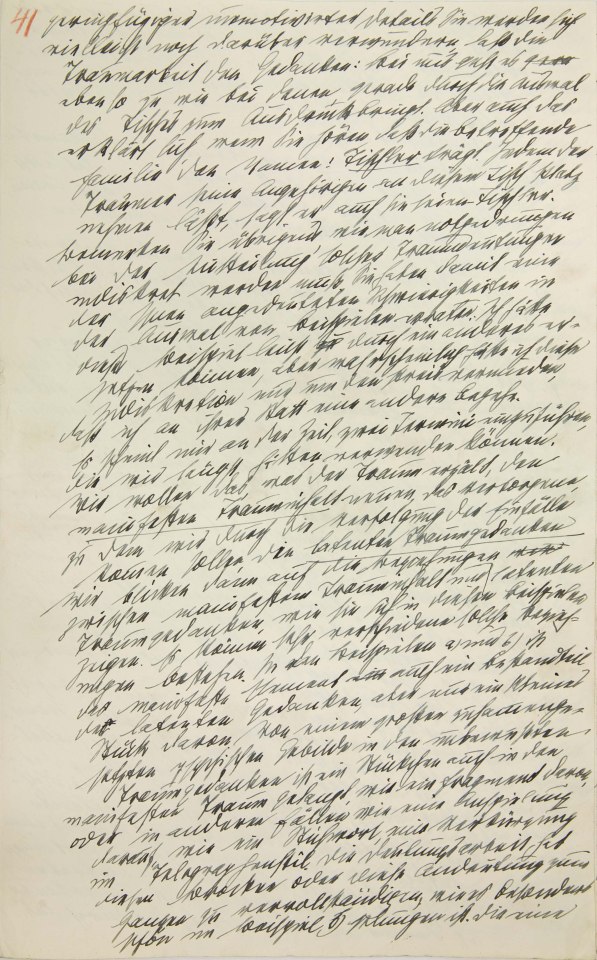 41
geringfügiges unmotivirtes Detail. Sie werden sich
vielleicht noch darüber verwundern, daß die
Traumarbeit den Gedanken: bei mir geht es
ebenso zu wie bei denen, gerade durch die Auswal
des Tisches zum Ausdruck bringt. Aber auch das
erklärt sich, wenn Sie hören, daß die betreffende
Familie den Namen: Tischler trägt. Indem der
Träumer seine Angehörigen an diesem Tisch Platz
nehmen läßt, sagt er, auch sie seien Tischler.
Bemerken Sie übrigens wie man notgedrungen
bei der Mitteilung solcher Traumdeutungen
indiskret werden muß. Sie haben damit eine
der Ihnen angedeuteten Schwierigkeiten in
der Auswal von Beispielen erraten. Ich hätte
dieses Beispiel leicht durch ein anderes er-
setzen können, aber wahrscheinlich hätte ich diese
Indiskretion nur um den Preis vermieden,
daß ich an ihrer Statt eine andere begehe.
Es scheint mir an der Zeit, zwei Termini einzuführen,
die wir längst hätten verwenden können.
Wir wollen das, was der Traum erzält, den
manifesten Trauminhalt nennen, das verborgene,
zu dem wir durch die Verfolgung der Einfälle
kommen sollen, die latenten Traumgedanken.
Wir blicken dann auf die Beziehungen
zwischen manifestem Trauminhalt und latenten
Traumgedanken, wie sie sich in diesen Beispielen
zeigen. Es können sehr verschiedene solche Bezieh-
ungen bestehen. In den Beispielen a) und b) ist
das manifeste Element auch ein Bestandteil
der latenten Gedanken, aber nur ein kleines
Stück davon. Von einem großen zusammenge-
setzten psychischen Gebilde in den unbewußten
Traumgedanken ist ein Stückchen auch in den
manifesten Traum gelangt, wie ein Fragment davon,
oder in anderen Fällen wie eine Anspielung
darauf, wie ein Stichwort, eine Verkürzung
im Telegraphenstil. Die Deutungsarbeit hat
diesen Brocken oder diese Andeutung zum
Ganzen zu vervollständigen, wie es besonders
schön im Beispiel b) gelungen ist. Die eine